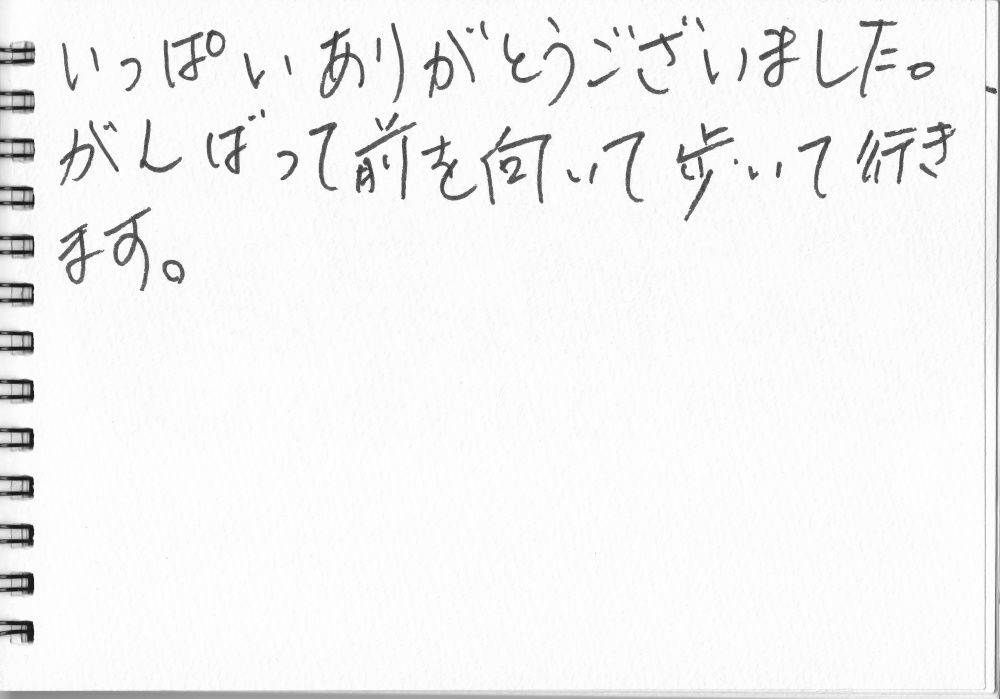 いっぱいありがとうございました。
がんばって前を向いて歩いて行き
ます。